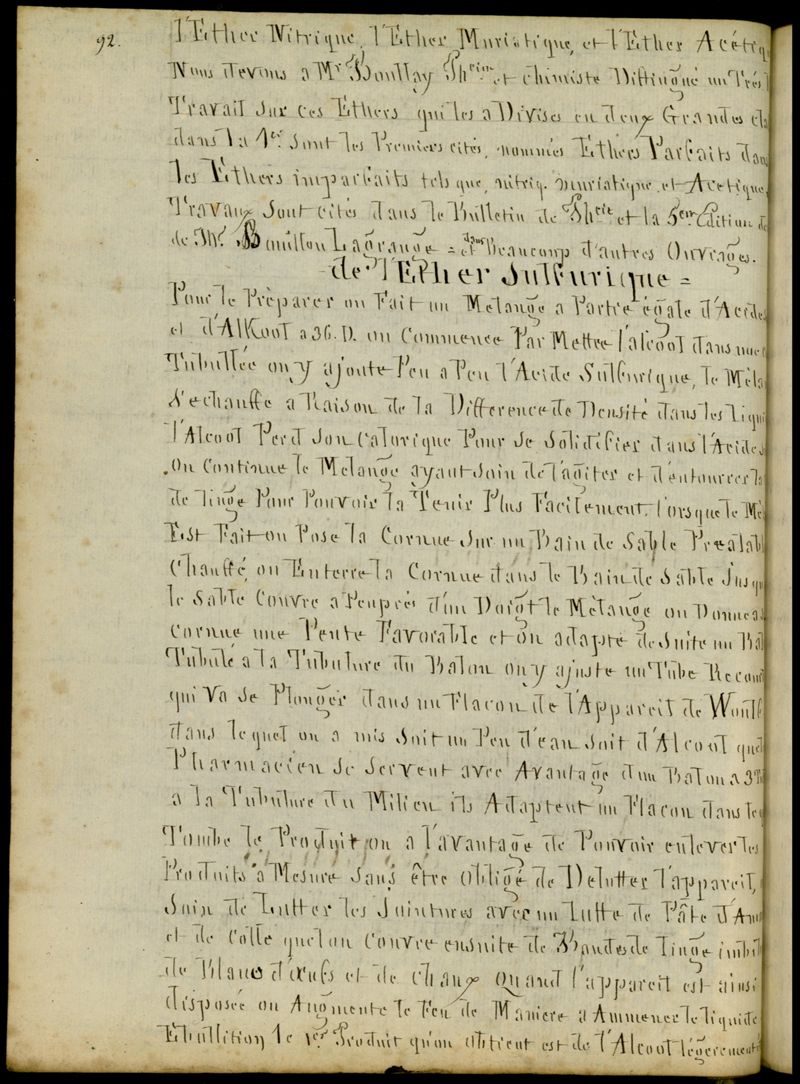 92.
l'Ether Nitrique, l'Ether Muriatique, et l'Ether Acétiq
Nous devons a Mr Boullay Phcien et chimiste Distingué un Très
Travail sur ces Ethers qu'il es a Divisés en deux Grandes cla
dans la 1er sont les Premiers cités, nommés Ethers Parfaits dan
les Ethers imparfaits tels que, nitriq. muriatique. et Acetique,
Travaux sont cités dans le Bulletin de Phcie et la 5em Edition de
de Mr. Bouillon Lagrange = et dans Beaucoup d'autres Ouvrages.
de l'Ether Sulfurique =
Pour le Préparer on Fait un Mélange a Partie égale d'Acide
et d'Alkool a 36. D. on Commence Par Mettre l'alcool dans une c
Tubullée on y ajoute Peu a Peu l'Acide Sulfurique, le Méla
S'echauffe a Raison de la Difference de Densité dans les liqui
l'Alcool Perd Son Calorique Pour Se Solidifier dans l'Acide s
On Continue le Melange ayant soin de l'agiter et d'entourrer la
de linge Pour Pouvoir la Tenir Plus Facilement. l'orsque le Mé
Est Fait on Pose la Cornue sur un Bain de Sable Préalabl
Chauffé, on Enterre la Cornue dans le Bain de Sable J'usqu
le Sable Couvre a Peuprès d'un Doigt le Mélange on Donne a
Cornue une Pente Favorable et on adapte de Suite un Bal
Tubulé a la Tubulure du Balon on y ajuste un Tube Recour
qui Va se Plonger dans un Flacon de l'Appareil de Woulf
dans lequel on a mis Soit un Peu d'eau Soit d'Alcool quel
Pharmacien Se Servent avec Avantage d'un Balon a 3 Tu
a la Tubulure du Milieu ils Adaptent un Flacon dans leq
Tombe le Produit on a l'avantage de Pouvoir enlever les
Produits a Mesure Sans être obligé de Delutter l'appareil,
Soin de Lutter les Jointures avec un Lutte de Pâte d'Ama
et de Colle quel'on Couvre ensuite de Bandes de linge imbib
de Blanc d'œufs et de Chaux Quand l'appareil est ainsi
disposée on Augmente le Feu de Maniere a Ammener le liquide
Ebullition le 1er Produit qu'on obtient est de l'Alcool légerement